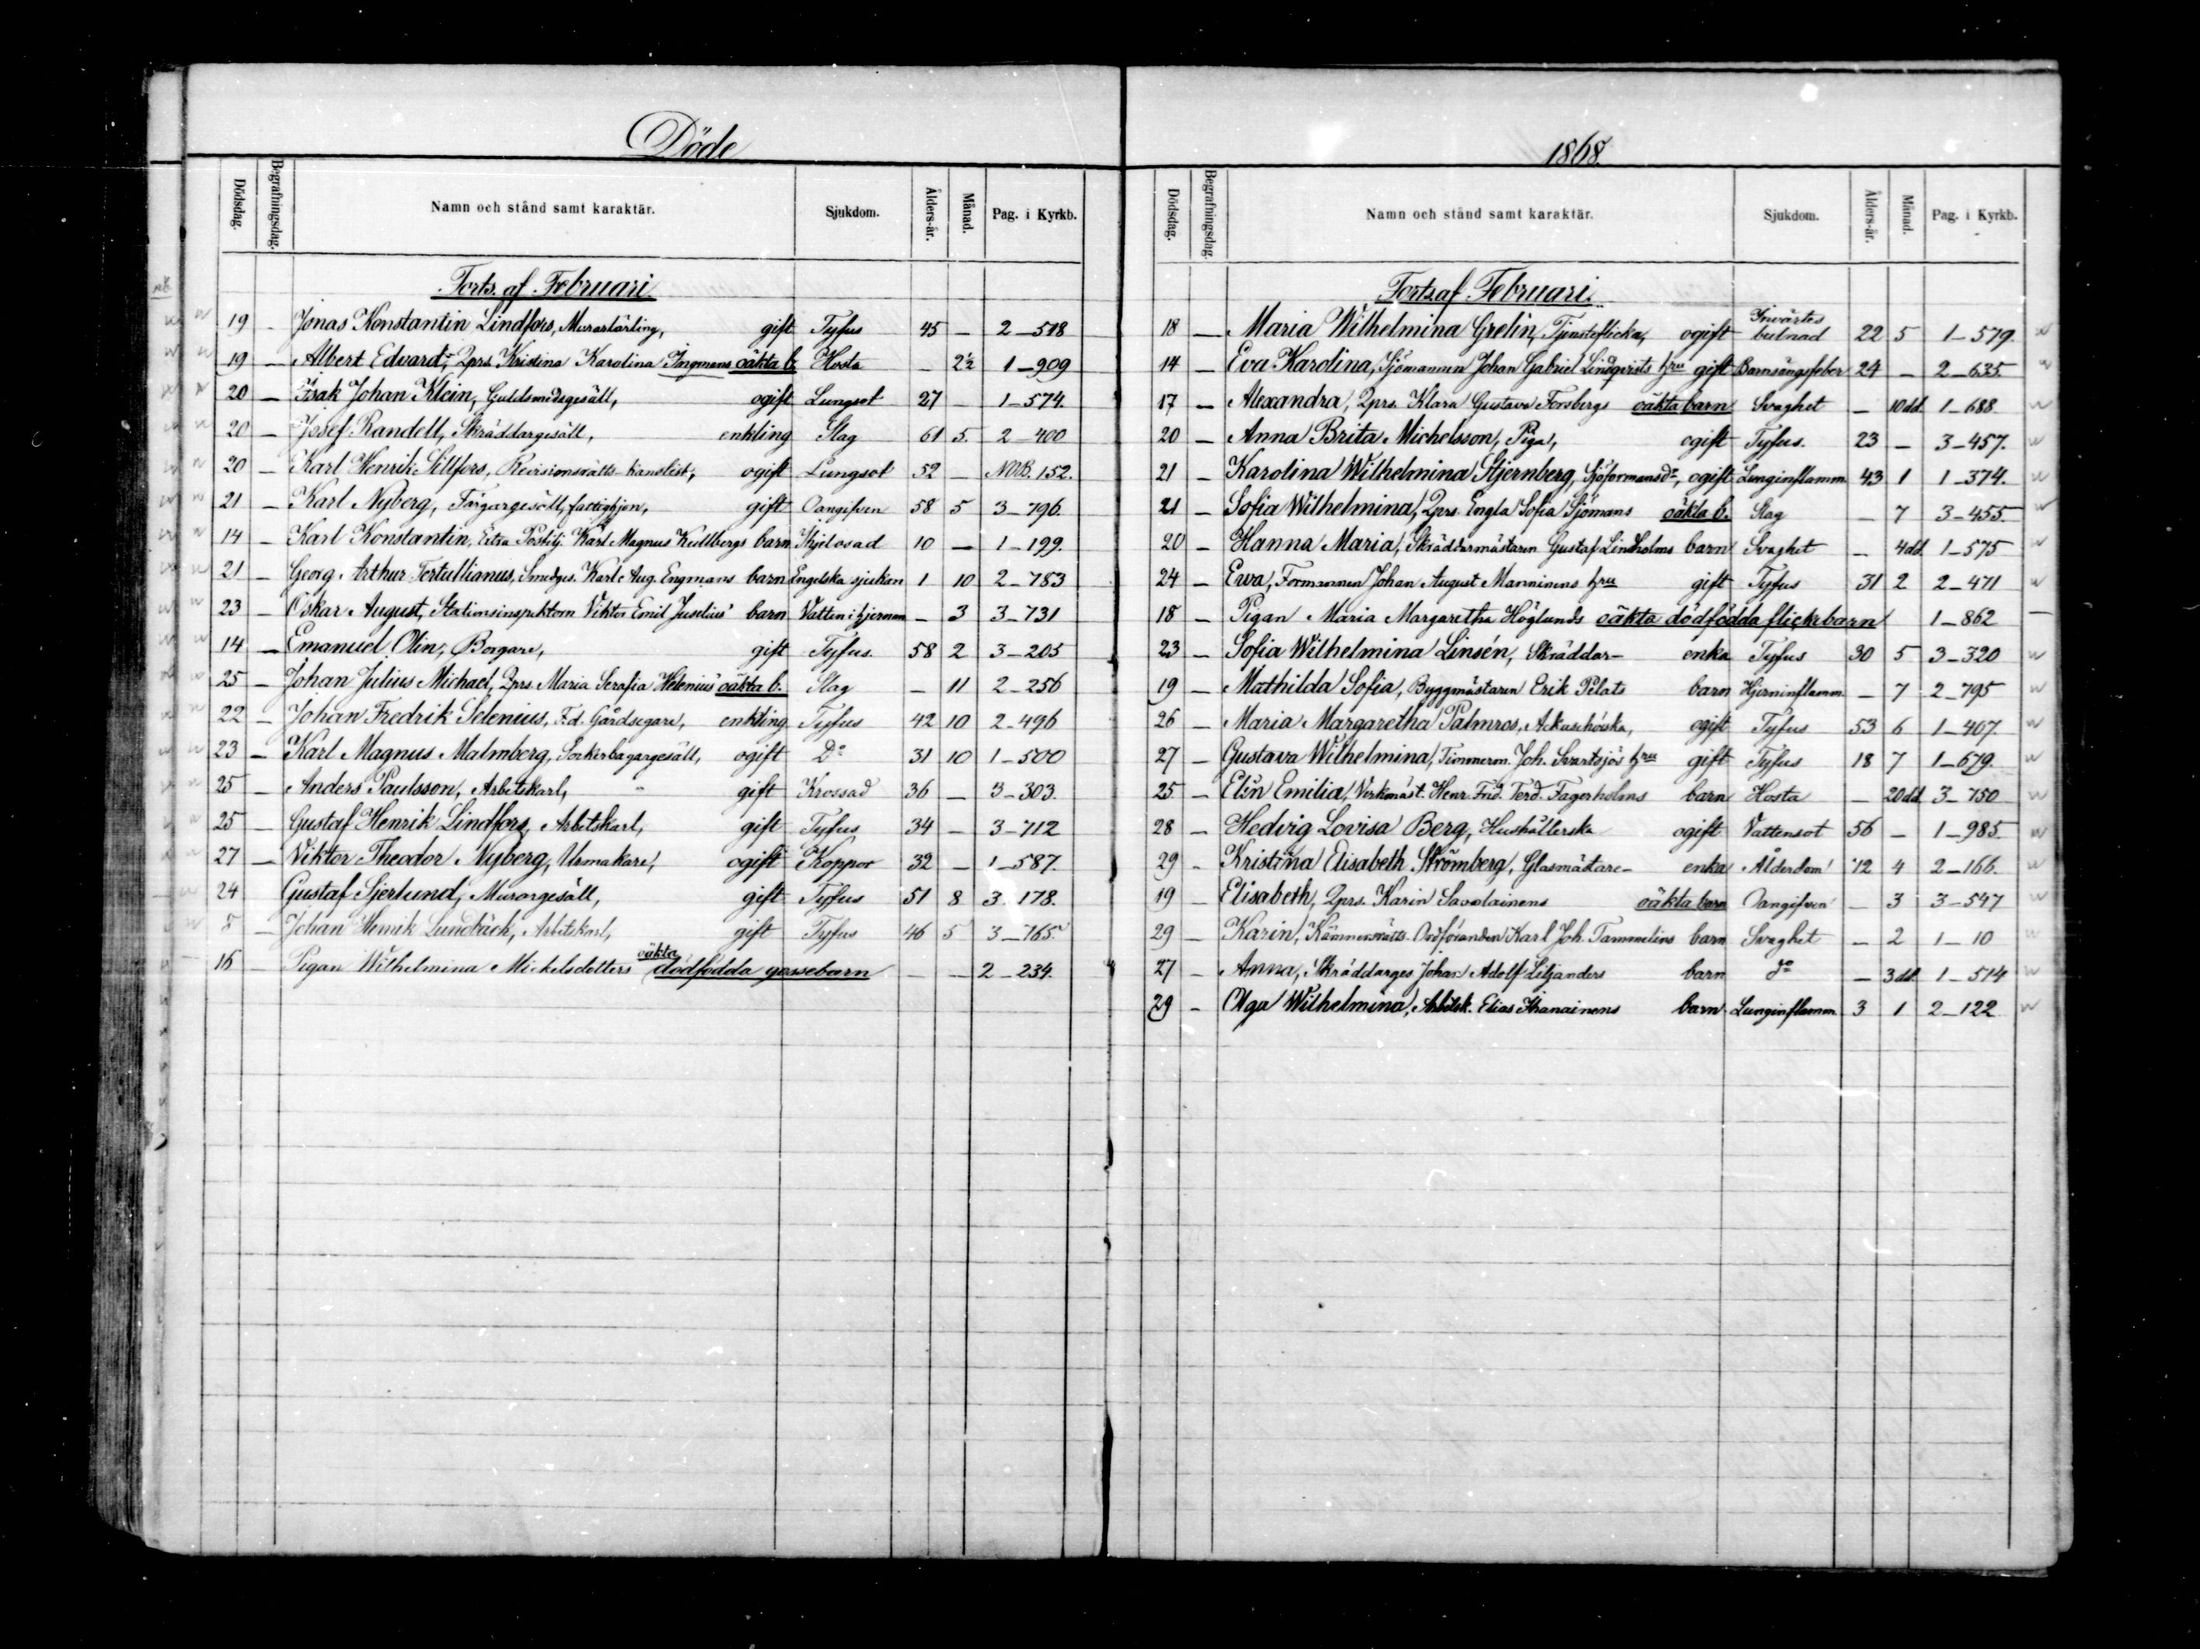 Döde
Dödsdag. Begrafningsdag. Namn och stånd samt karaktär. Sjukdom. Ålders-år. Månad. Pag. i Kyrkb.
Forts. af Februari
19 - Jonas Konstantin Lindfors, Murarlärling, gift Tyfus 45 - 2-518
19 - Albert Edvard, Qprs. Kristina Karolina Ingmans oäkta b. Hosta - 2½ 1-909
20 - Isak Johan Klein, Guldsmedsgesäll, ogift Lungsot 27 - 1-574.
20 - Josef Randell, Skräddargesäll, enkling Slag 61 5. 2-400
20 - Karl Henrik Sillfors, Revisionsrätts-kanslist, ogift Lungsot 52 - NMB. 152.
21 - Karl Nyberg, Färgargesäll, fattighjon, gift Oangifven 58 5 3-796
14 - Karl Konstantin, Extra Postilj. Karl Magnus Kullbergs barn Ihjelosad 10 - 1-199.
21 - Georg Arthur Tertullianus, Smedges. Karl Aug. Engmans barn Engelska sjukan 1 10 2-783
23 - Oskar August, Stationsinspektorn Viktor Emil Juselius' barn Vatten i hjernan - 3 3-731
14 - Emanuel Olin, Borgare, gift Tyfus. 58 2 3-205
25 - Johan Julius Michael, Qprs. Maria Serafia Helenius' oäkta b. Slag - 11 2-256
22 - Johan Fredrik Selenius, F.d. Gårdsegare, enkling Tyfus 42 10 2-496
23 - Karl Magnus Malmberg, Sockerbagargesäll, ogift Do 31 10 1-500
25 - Anders Paulsson, Arbetskarl, gift Krossad 36 - 3-303.
25 - Gustaf Henrik Lindfors, Arbetskarl, gift Tyfus 34 - 3-712
27 - Viktor Theodor Nyberg, Urmakare, ogift Koppor 32 - 1-587.
24 Gustaf Sjerlund, Murargesäll, gift Tyfus 51 8 3-178.
5 - Johan Henrik Lundbäck, Arbetskarl, gift Tyfus 46 5 3-765.
16 - Pigan Wilhelmina Mickelsdotters oäkta dödfödda gossebarn - - 2-234.
1868.
Dödsdag. Begrafningsdag. Namn och stånd samt karaktär. Sjukdom. Ålders-år. Månad. Pag. i Kyrkb.
Forts. af Februari.
18 - Maria Wilhelmina Grelin, Tjensteflicka, ogift Invärtes bulnad 22 5 1-579.
14 - Eva Karolina, Sjömannen Johan Gabriel Lindqvists hru gift Barnsängsfeber 24 - 2-635.
17 - Alexandra, Qprs. Klara Gustava Forsbergs oäkta barn Svaghet - 10 dd. 1-688
20 - Anna Brita Michelsson, Piga, ogift Tyfus. 23 - 3-457.
21 - Karolina Wilhelmina Stjernberg, Sjöformansdr, ogift Lunginflamm. 43 1 1-374.
21 - Sofia Wilhelmina, Qprs. Engla Sofia Sjömans oäkta b. Slag - 7 3-455.
20 - Hanna Maria, Skräddarmästaren Gustaf Lindholms barn Svaghet - 4 dd. 1-575
24 - Ewa, Formannen Johan August Manninens hru gift Tyfus 31 2 2-471
18 - Pigan Maria Margaretha Höglunds oäkta dödfödda flickebarn 1-862
23 - Sofia Wilhelmina Linsén, Skräddar- enka Tyfus 30 5 3-320
19 - Mathilda Sofia, Byggmästaren Erik Pilats barn Hjerninflamm. - 7 2-795
26 - Maria Margaretha Palmros, Ackuschörska, ogift Tyfus 53 6 1-407.
27 - Gustava Wilhelmina, Timmerm. Joh. Svartsjös hru gift Tyfus 18 7 1-679.
25 - Elin Emilia, Verkmäst. Henr. Frid. Ferd. Fagerholms barn Hosta - 20 dd. 3-750
28 - Hedvig Lovisa Berg, Hushållerska ogift Vattensot 56 - 1-985.
29 - Kristina Elisabeth Strömberg, Glasmästare- enka Ålderdom 72 4 2-166.
19 - Elisabeth, Qprs. Karin Savolainens oäkta barn Oangifven - 3 3-547
29 - Karin, Kämnersrätts-Ordföranden Karl Joh. Tammelins barn Svaghet - 2 1-10
27 - Anna, Skräddarges. Johan Adolf Liljanders barn do - 3 dd. 1-514
29 - Olga Wilhelmina, Arbetsk. Elias Ihanainens barn Lunginflamm. 3 1 2-122